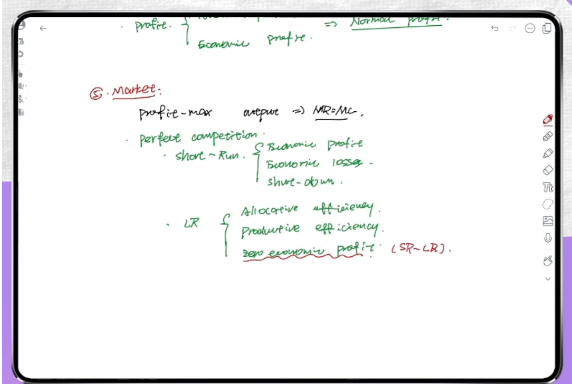 profit.
Economic profit.
=> Normal profit.
⑤. Market:
profit-max output => MR=MC.
· perfect competition.
· short-Run. { Economic profit
Economic losses.
shut-down.
· LR { Allocative efficiency.
productive efficiency.
zero economic profit. (SR~LR).